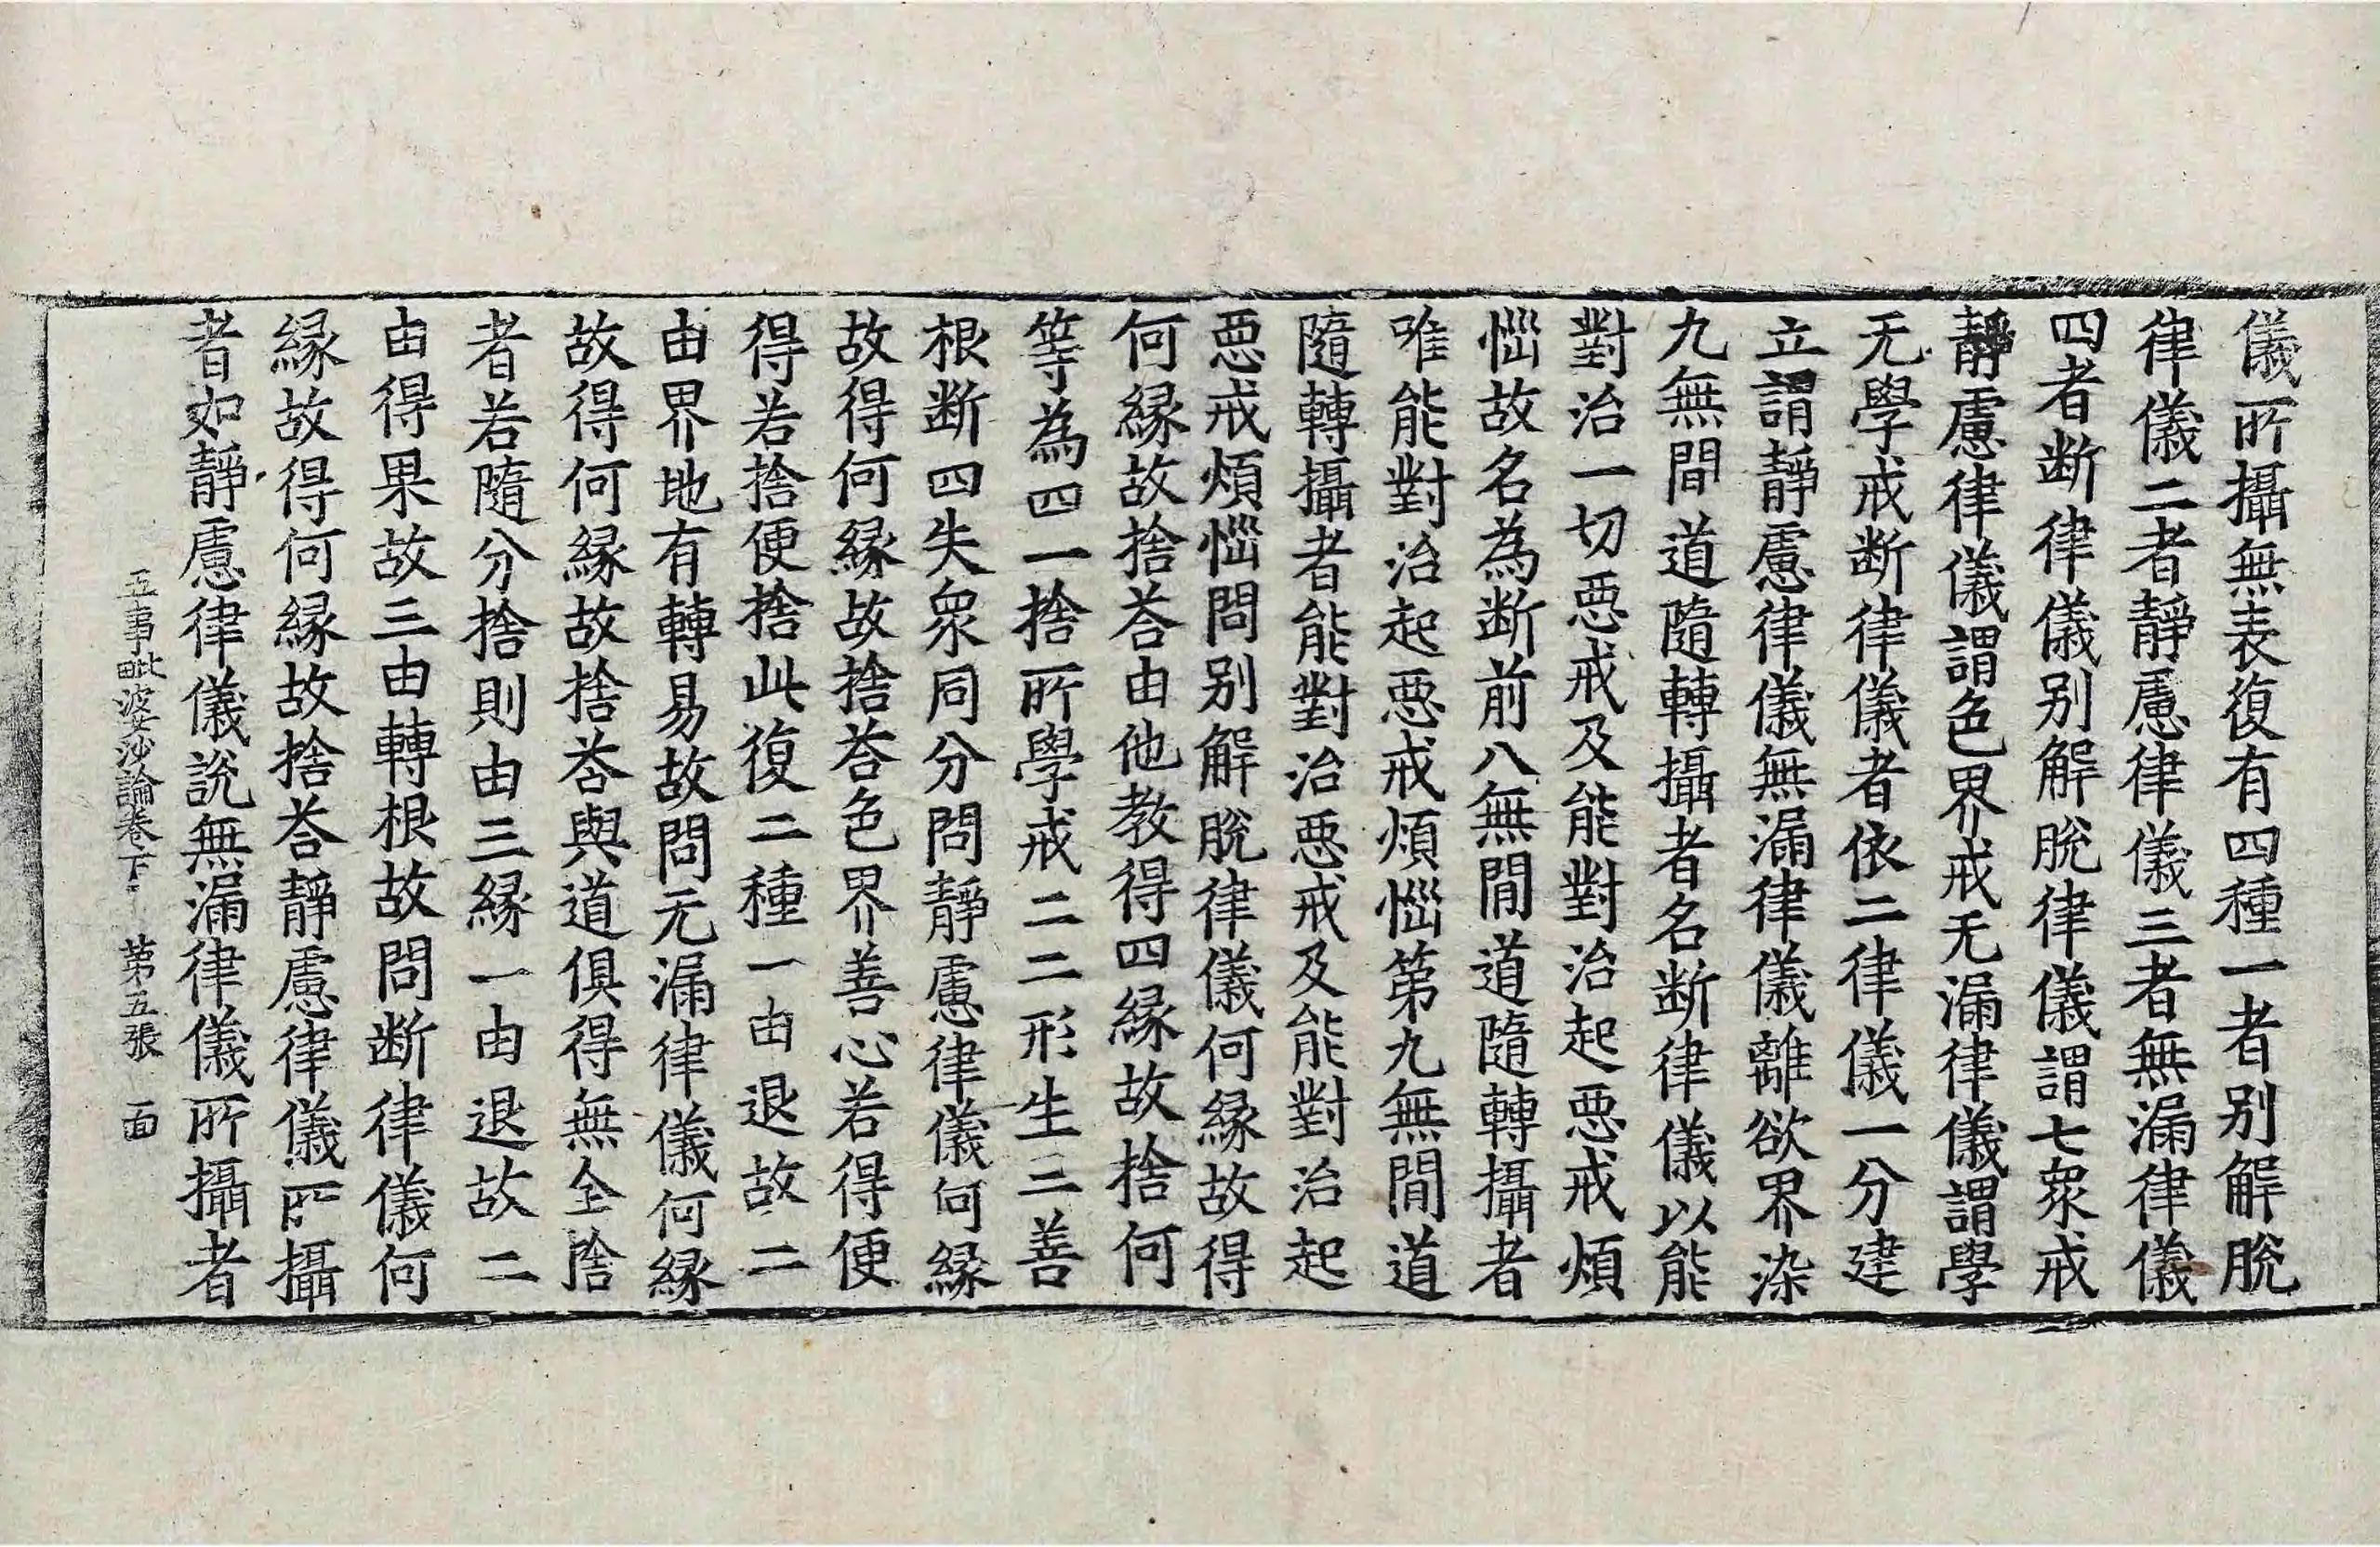 儀所攝無表復有四種一者別解脫
律儀二者靜慮律儀三者無漏律儀
四者断律儀别解脫律儀謂七衆戒
靜慮律儀謂色界戒无漏律儀謂學
无學戒断律儀者依二律儀一分建
立謂靜慮律儀無漏律儀離欲界染
九無間道隨轉攝者名断律儀以能
對治一切惡戒及能對治起惡戒煩
惱故名為断前八無間道隨轉攝者
唯能對治起惡戒煩惱第九無間道
隨轉攝者能對治惡戒及能對治起
惡戒煩惱問别解脫律儀何縁故得
何縁故捨荅由他教得四縁故捨何
等為四一捨所學戒二二形生三善
根断四失衆同分問靜慮律儀何縁
故得何縁故捨荅色界善心若得便
得若捨便捨此復二種一由退故二
由界地有轉易故問无漏律儀何縁
故得何縁故捨荅與道俱得無全捨
者若隨分捨則由三縁一由退故二
由得果故三由轉根故問断律儀何
縁故得何縁故捨荅靜慮律儀所攝
者如靜慮律儀說無漏律儀所攝者
五事毗婆沙論卷下 第五張 面